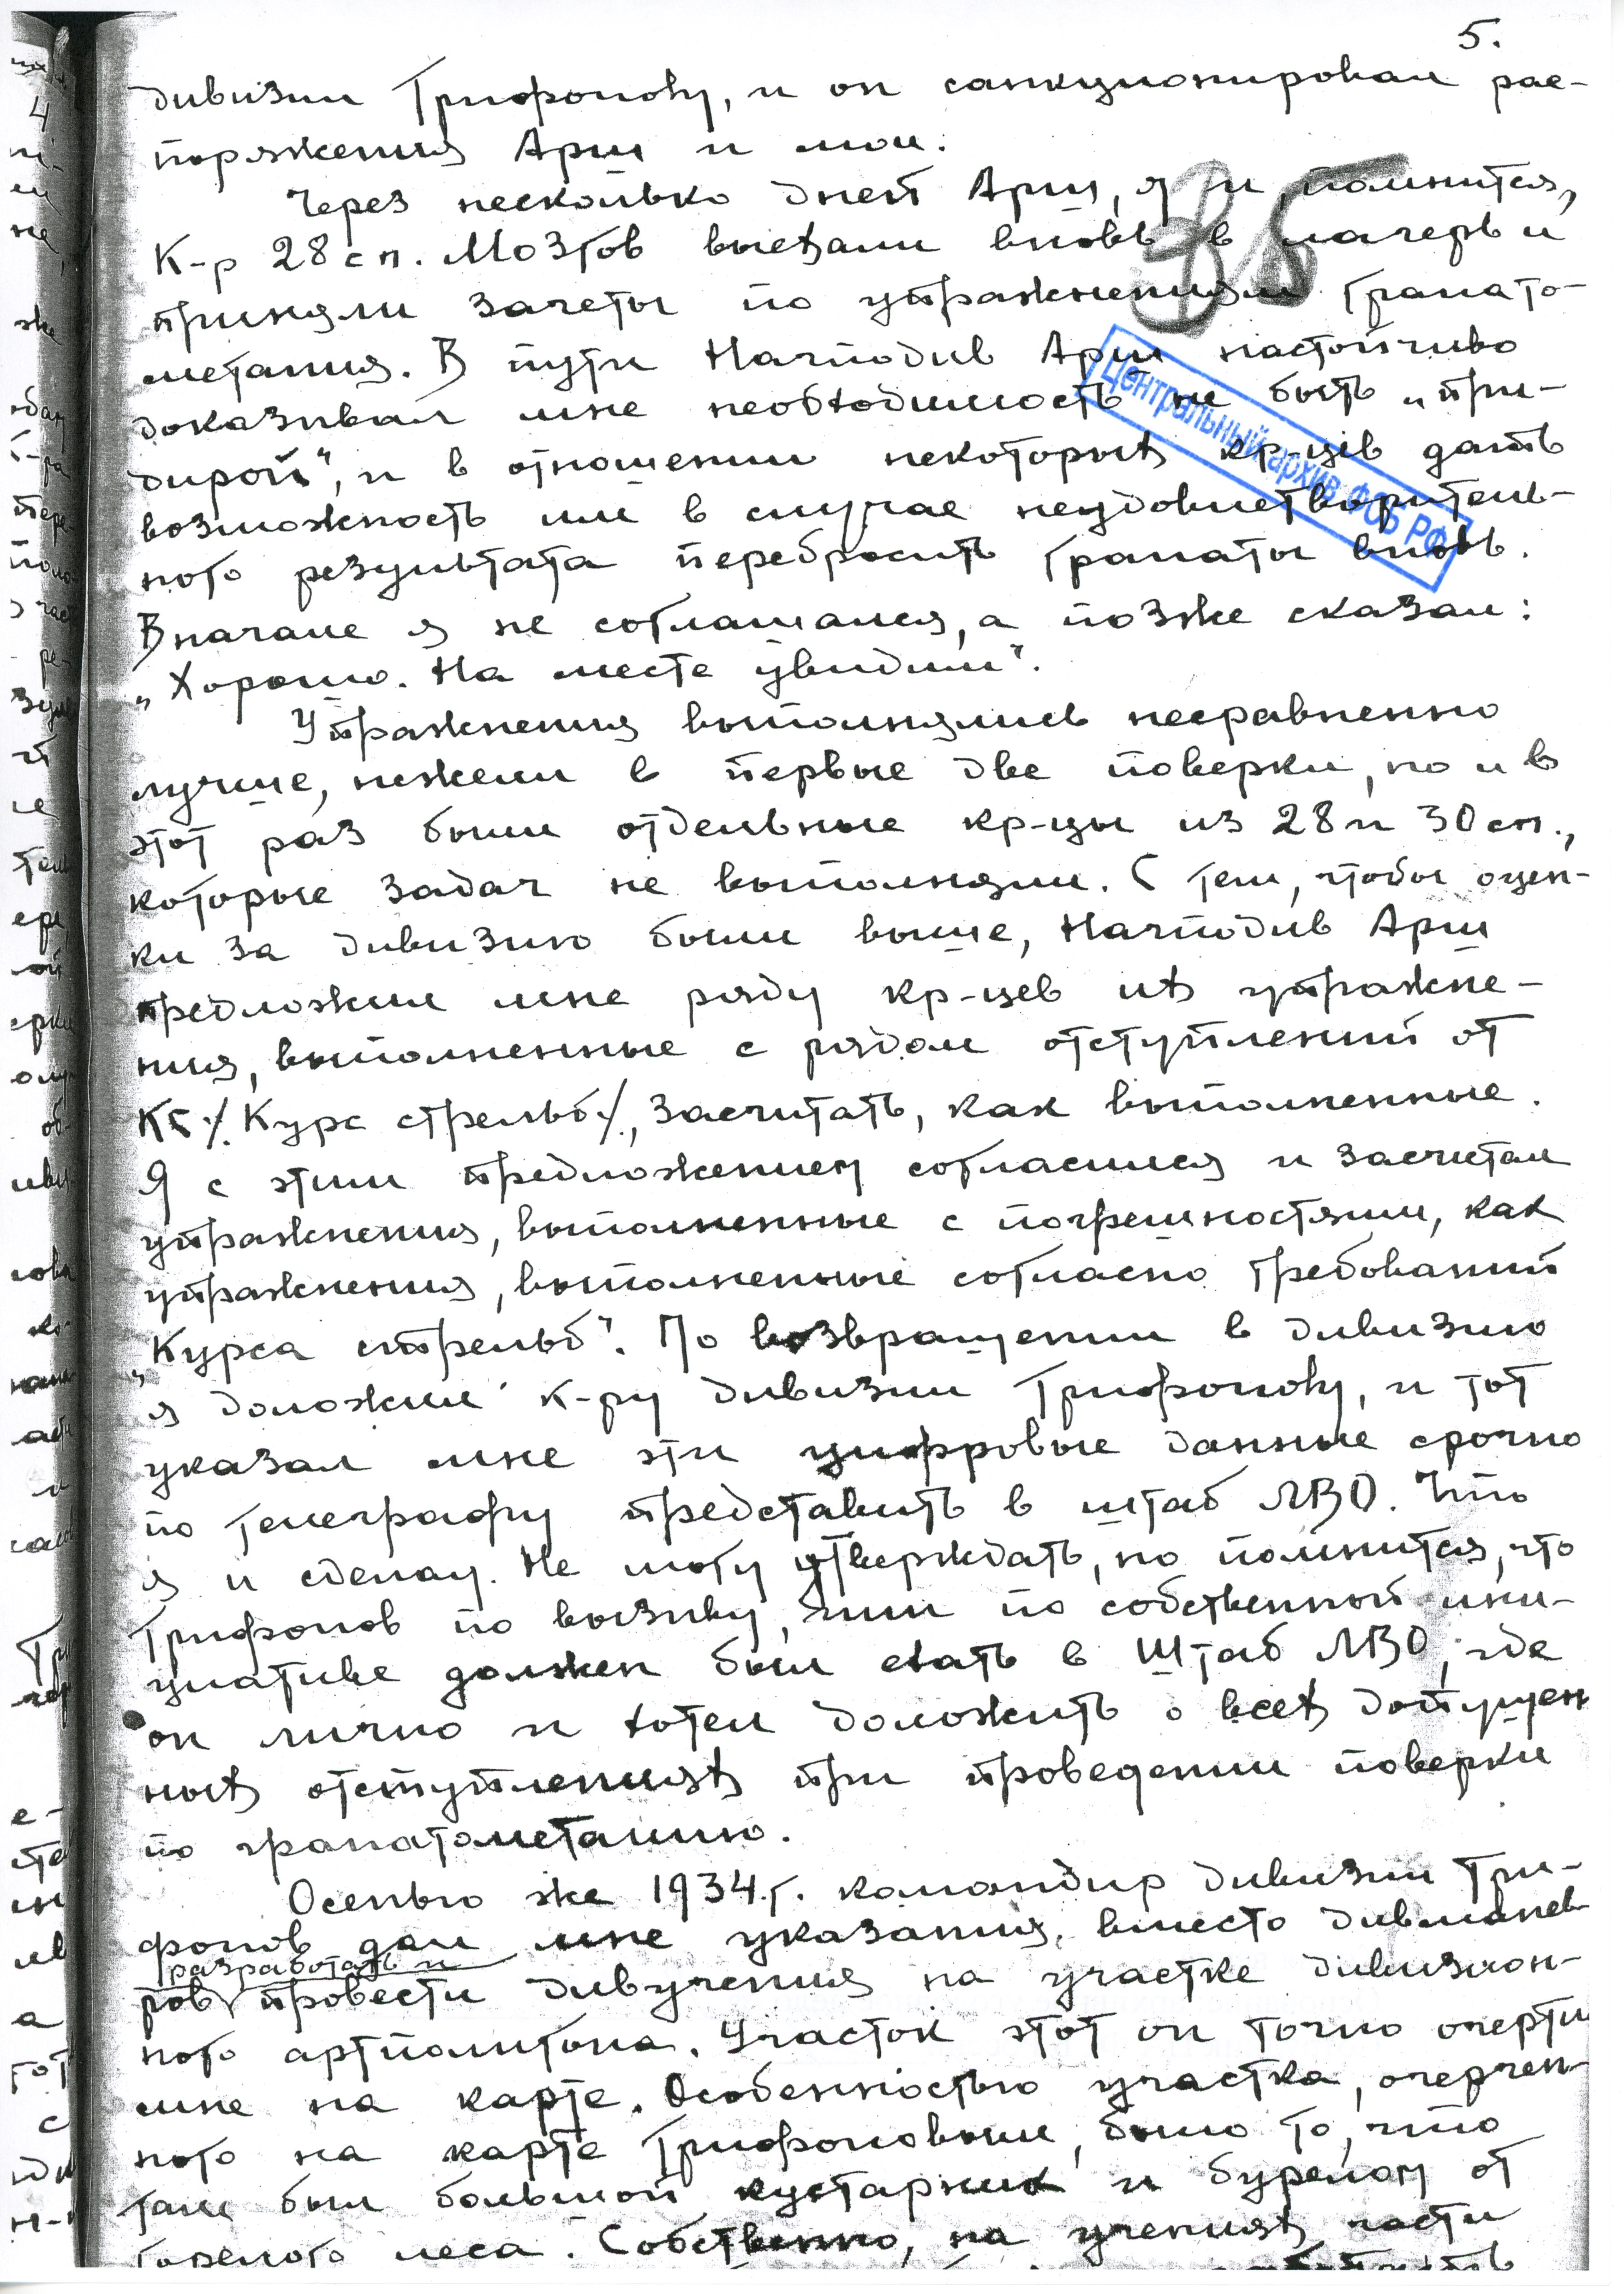 5.
дивизии Трифонову, и он санкционировал рас-
поряжения Арш и мои.
Через несколько дней Арш, я и, помнится,
К-р 28 сп. Мозгов выехали вновь в лагерь и
приняли зачеты по упражнениям гранато-
метания. В пути Начподив Арш настойчиво
доказывал мне необходимость не быть „при-
дирой", и в отношении некоторых кр-цев дать
возможность им в случае неудовлетворитель-
ного результата перебросить гранаты вновь.
Вначале я не соглашался, а позже сказал:
„Хорошо. На месте увидим".
Упражнения выполнялись несравненно
лучше, нежели в первые две поверки, но и в
этот раз были отдельные кр-цы из 28 и 30 сп.,
которые задач не выполняли. С тем, чтобы оцен-
ки за дивизию были выше, Начподив Арш
предложил мне ряду кр-цев их упражне-
ния, выполненные с рядом отступлений от
КС /. Курс стрельб /., засчитать, как выполненные.
Я с этим предложением согласился и засчитал
упражнения, выполненные с погрешностями, как
упражнения, выполненные согласно требований
„Курса стрельб". По возвращении в дивизию
я доложил к-ру дивизии Трифонову, и тот
указал мне эти цифровые данные срочно
по телеграфу представить в штаб ЛВО. Что
я и сделал. Не могу утверждать, но помнится, что
Трифонов по вызову, или по собственной ини-
циативе должен был ехать в Штаб ЛВО, где
он лично и хотел доложить о всех допущен
ных отступлениях при проведении поверки
по гранатометанию.
Осенью же 1934 г. командир дивизии Три-
фонов дал мне указания, вместо дивманев-
разработать и
ров провести дивучения на участке дивизион-
ного артполигона. Участок этот он точно очертил
мне на карте. Особенностью участка, очерчен-
ного на карте Трифоновым, было то, что
там был большой кустарник и бурелом от
горелого леса. Собственно, на учениях части
Центральный архив ФСБ РФ